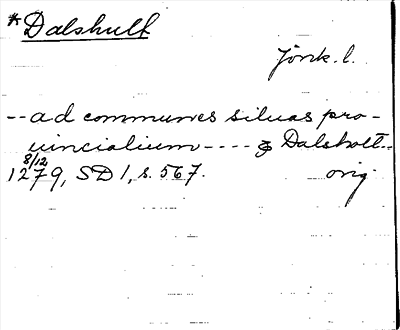 *Dalshult
Jönk. l.
-- ad communes siluas pro-
uincialium ---- Dalshott..
8/12
1279, SD 1, s. 567. orig.